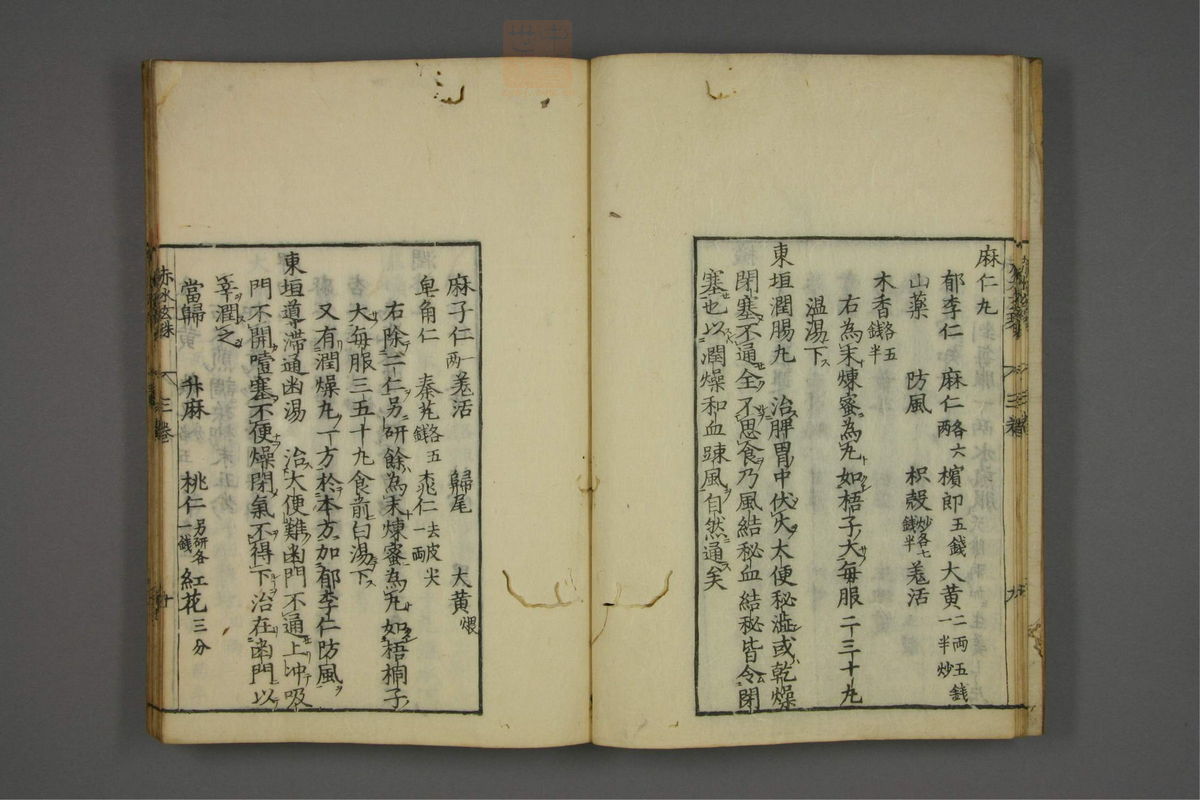 麻仁丸
郁李仁 麻仁各六両 檳郎五錢 大黄二両五錢一半炒
山薬 防風 枳殻炒各七錢半 羗活
木香各五錢半
右為末煉蜜為丸如梧子大毎服二三十丸
温湯下
東垣潤腸丸 治脾胃中伏火大便秘澁或乾燥
閉塞不通全不思食乃風結秘血結秘皆令閉
塞也以潤燥和血踈風自然通矣
麻子仁一両 羗活 歸尾 大黄煨
皁角仁 秦艽各五錢 桃仁去皮尖一両
右除二仁另研餘為末煉蜜為丸如梧桐子
大毎服三五十丸食前白湯下
又有潤燥丸一方於本方加郁李仁防風
東垣導滞通幽湯 治大便難幽門不通上冲吸
門不開噎塞不便燥閉氣不得下治在幽門以
辛潤之
當歸 升麻 桃仁另研各一錢 紅花三分
赤水玄珠 三卷 十